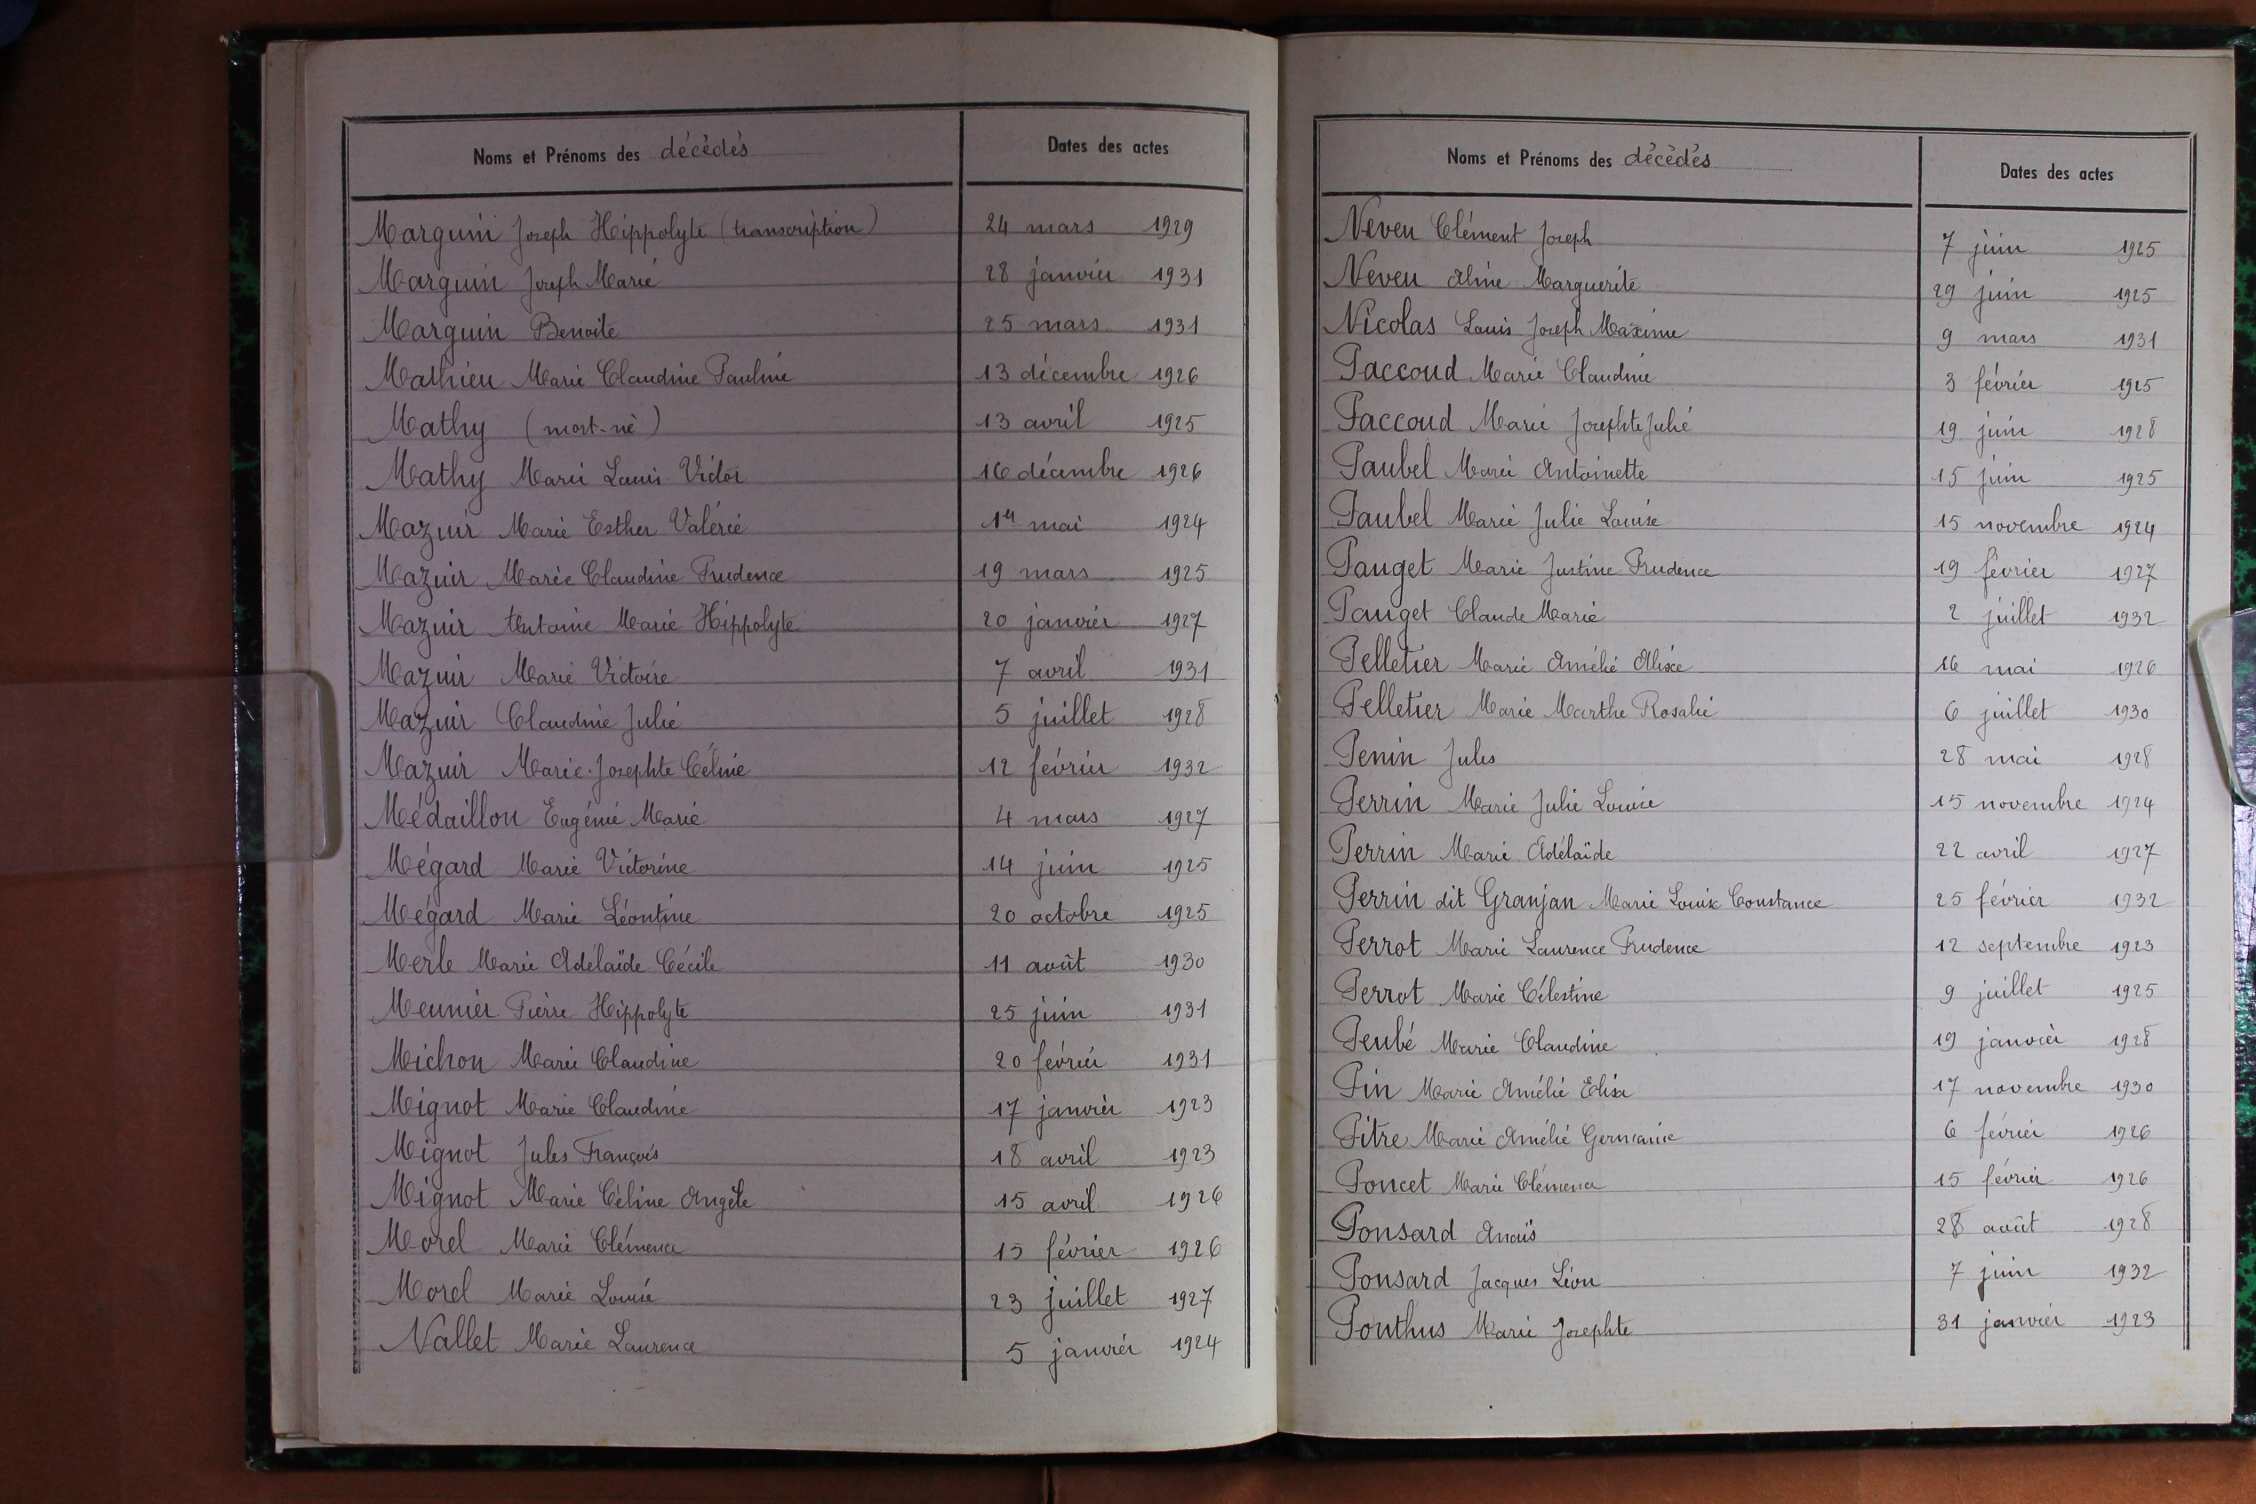 Noms et Prénoms des décédés Dates des actes
Marguin Joseph Hippolyte (transcription) 24 mars 1929
Marguin Joseph Marie 28 janvier 1931
Marguin Benoîte 25 mars 1931
Mathieu Marie Claudine Pauline 13 décembre 1926
Mathy (mort-né) 13 avril 1925
Mathy Marie Louis Victor 16 décembre 1926
Mazuir Marie Esther Valérie mai 1924
Mazuir Marie Claudine Prudence 19 mars 1925
Mazuir Antoine Marie Hippolyte 20 janvier 1927
Mazuir Marie Victoire 7 avril 1931
Mazuir Claudine Julie 5 juillet 1928
Mazuir Marie-Josephte Céline 12 février 1932
Médaillon Eugénie Marie 4 mars 1927
Mégard Marie Victorine 14 juin 1925
Mégard Marie Léontine 20 octobre 1925
Merle Marie Adélaïde Cécile 11 août 1930
Meunier Pierre Hippolyte 25 juin 1931
Michon Marie Claudine 20 février 1931
Mignot Marie Claudine 17 janvier 1923
Mignot Jules François 18 avril 1923
Mignot Marie Céline Angèle 15 avril 1926
Morel Marie Clémence 15 février 1926
Morel Marie Louise 23 juillet 1927
Nallet Marie Laurence 5 janvier 1924
Noms et Prénoms des décédés Dates des actes
Neveu Clément Joseph 7 juin 1925
Neveu Aline Marguerite 29 juin 1925
Nicolas Louis Joseph Maxime 9 mars 1931
Paccoud Marie Claudine 3 février 1925
Paccoud Marie Josephte Julie 19 juin 1928
Paubel Marie Antoinette 15 juin 1925
Paubel Marie Julie Louise 15 novembre 1924
Pauget Marie Justine Prudence 19 février 1927
Pauget Claude Marie 2 juillet 1932
Pelletier Marie Amélie Alixe 16 mai 1926
Pelletier Marie Marthe Rosalie 6 juillet 1930
Penin Jules 28 mai 1928
Perrin Marie Julie Louise 15 novembre 1924
Perrin Marie Adélaïde 22 avril 1927
Perrin dit Granjan Marie Louise Constance 25 février 1932
Perrot Marie Laurence Prudence 12 septembre 1923
Perrot Marie Célestine 9 juillet 1925
Peubé Marie Claudine 19 janvier 1928
Pin Marie Amélie Elisa 17 novembre 1930
Pitre Marie Amélie Germaine 6 février 1926
Poncet Marie Clémence 15 février 1926
Ponsard Anaïs 28 août 1928
Ponsard Jacques Léon 7 juin 1932
Ponthus Marie Josephte 31 janvier 1923